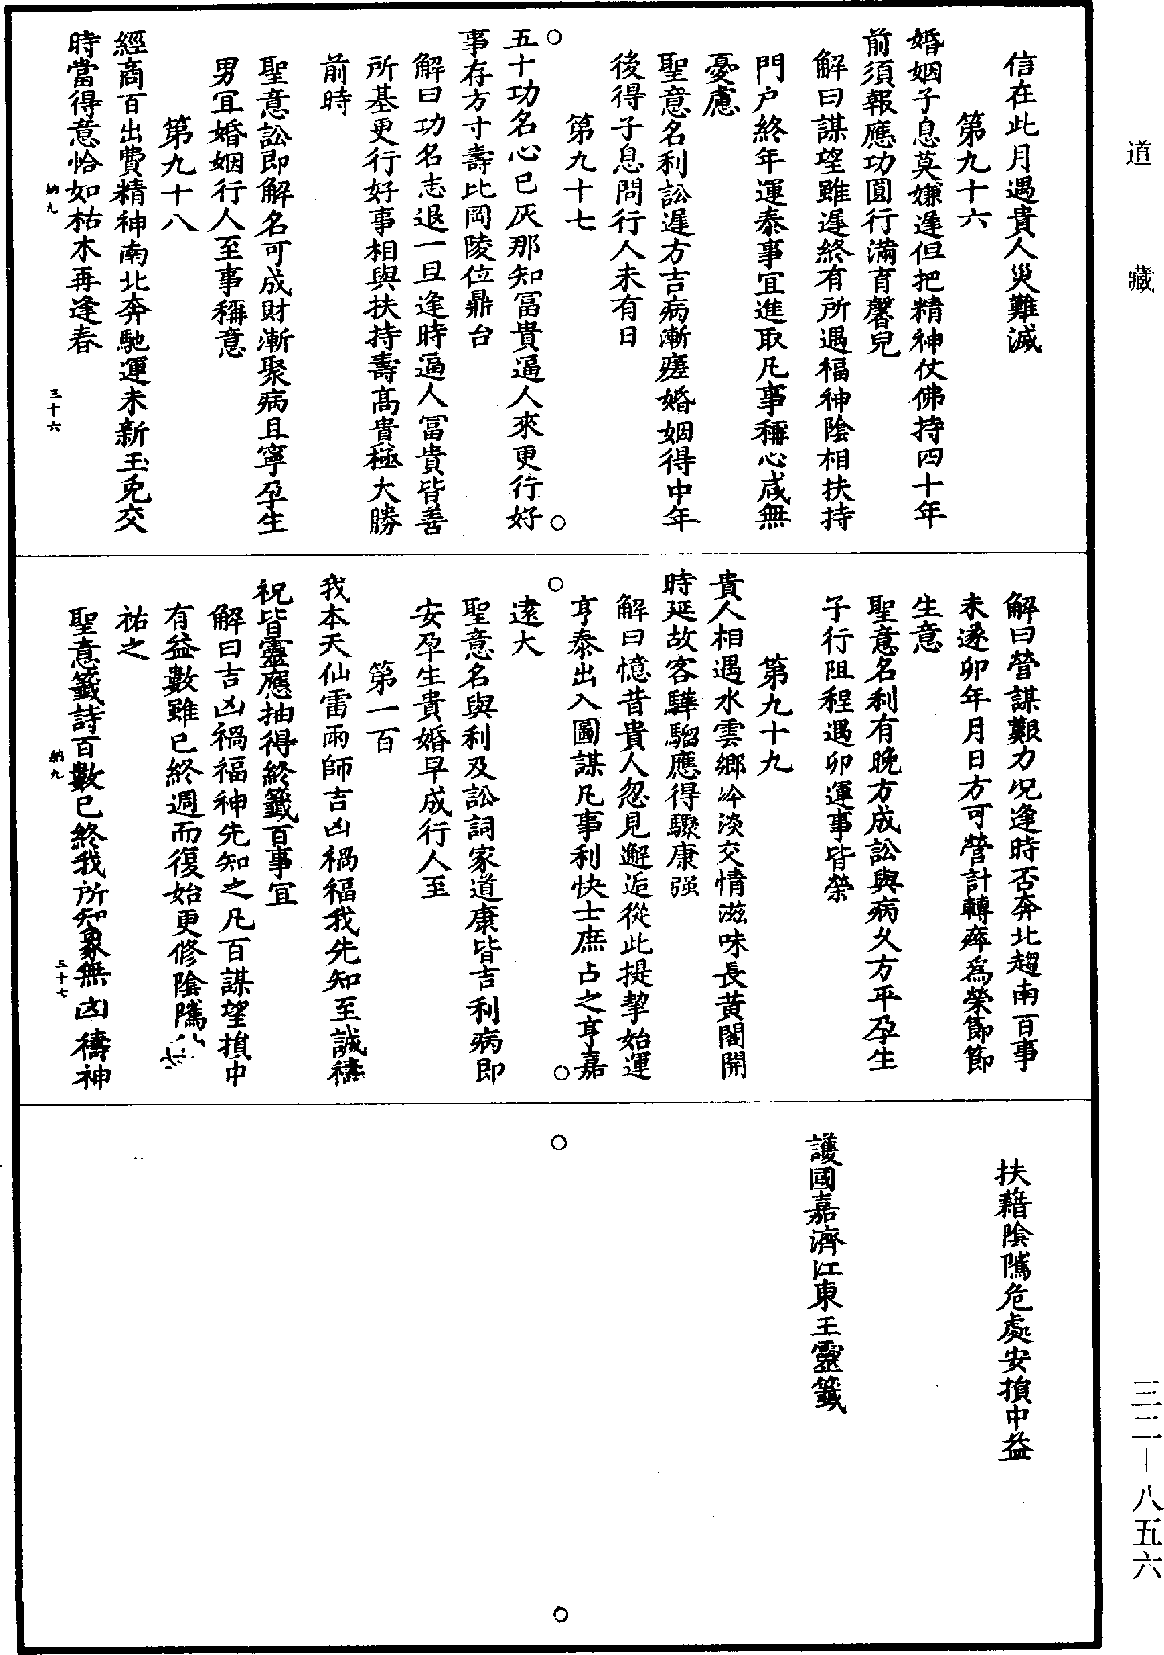 道藏
信在此月遇貴人災難滅
第九十六
婚姻子息莫嫌遲但把精神仗佛持四十年
前須報應功圓行滿育馨兒
解曰謀望雖遲終有所遇福神陰相扶持
門户終年運泰事宜進取凡事稱心咸無
憂慮
聖意名利訟遲方吉病漸瘥婚姻得中年
後得子息問行人未有日
第九十七
五十功名心已灰那知冨貴逼人來更行好
事存方寸壽比岡陵位鼎台
解曰功名志退一旦逢時逼人冨貴皆善
所基更行好事相與扶持壽高貴極大勝
前時
聖意訟即解名可成財漸聚病且寧孕生
男宜婚姻行人至事稱意
第九十八
經商百出費精神南北奔馳運未新玉兔交
時當得意恰如枯木再逢春
納九
三十六
解曰營謀艱力况逢時否奔北趨南百事
未遂卯年月日方可營計轉瘁爲榮節節
生意
聖意名利有晚方成訟與病久方平孕生
子行阻程遇卯運事皆榮
第九十九
貴人相遇水雲鄉冷淡交情滋味長黃閣開
時延故客驊騮應得驟康强
解曰憶昔貴人忽見邂逅從此提挈始運
亨泰出入圖謀凡事利快士庶占之亨嘉
逺大
聖意名與利及訟詞家道康皆吉利病即
安孕生貴婚早成行人至
第一百
我本天仙雷雨師吉凶禍福我先知至誠禱
祝皆靈應抽得終籤百事宜
解曰吉凶禍福神先知之凡百謀望損中
有益數雖已終週而復始更修陰騭
祐之
聖意籤詩百數已終我所知象無凶禱神
納九
三十七
扶藉陰騭危處安損中益
護國嘉濟江東王靈籤
三二—八五六